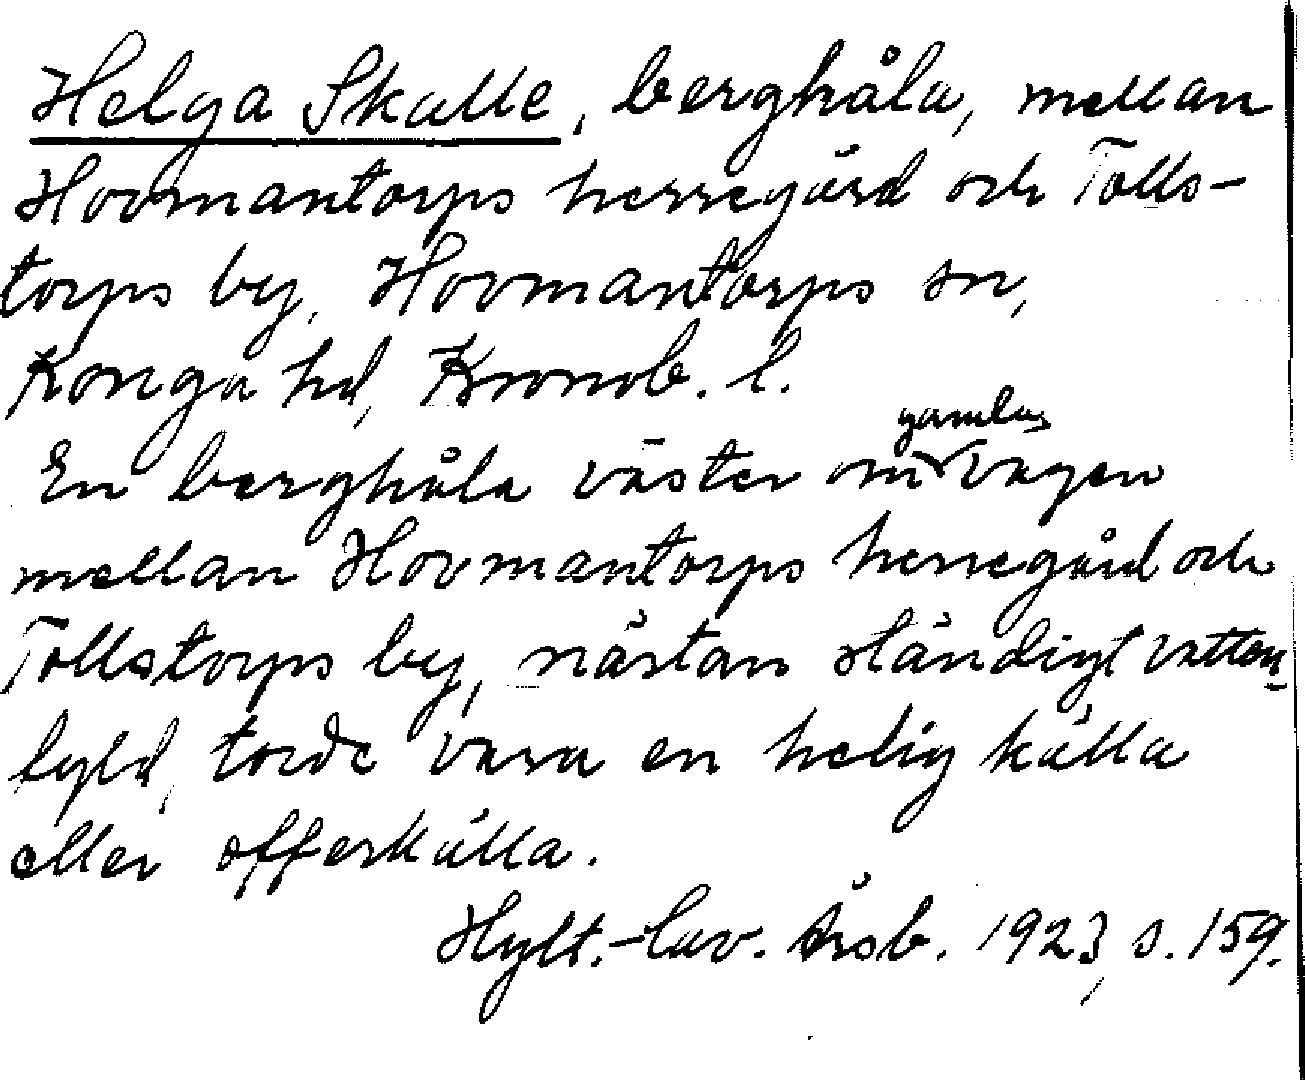 Helga Skalle, berghåla, mellan
Hovmantorps herregård och Tolls-
torps by, Hovmantorps sn,
Konga hd, Kronob. l.
En berghåla väster om gamla vägen
mellan Hovmantorps herregård och
Tollstorps by, nästan ständigt vatten-
fyld, torde vara en helig källa
eller offerkälla.
Hylt.-Cav. Årsb. 1923, s. 159.